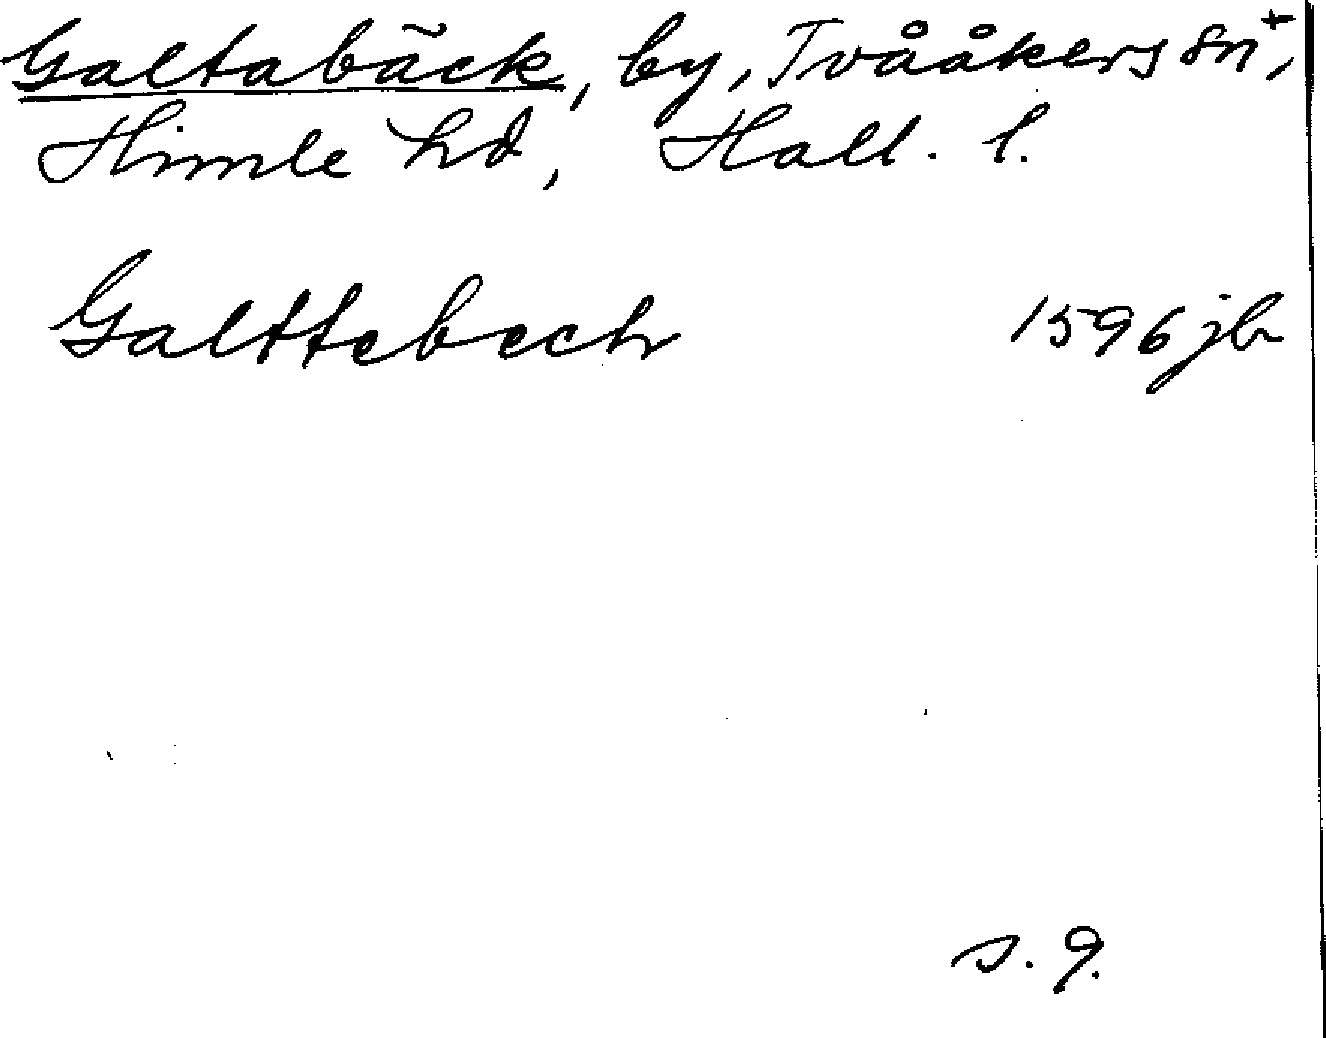 Galtabäck, by, Tvååkers sn+,
Himle hd, Hall. l.
Galttebech 1596 jb
s. 9.